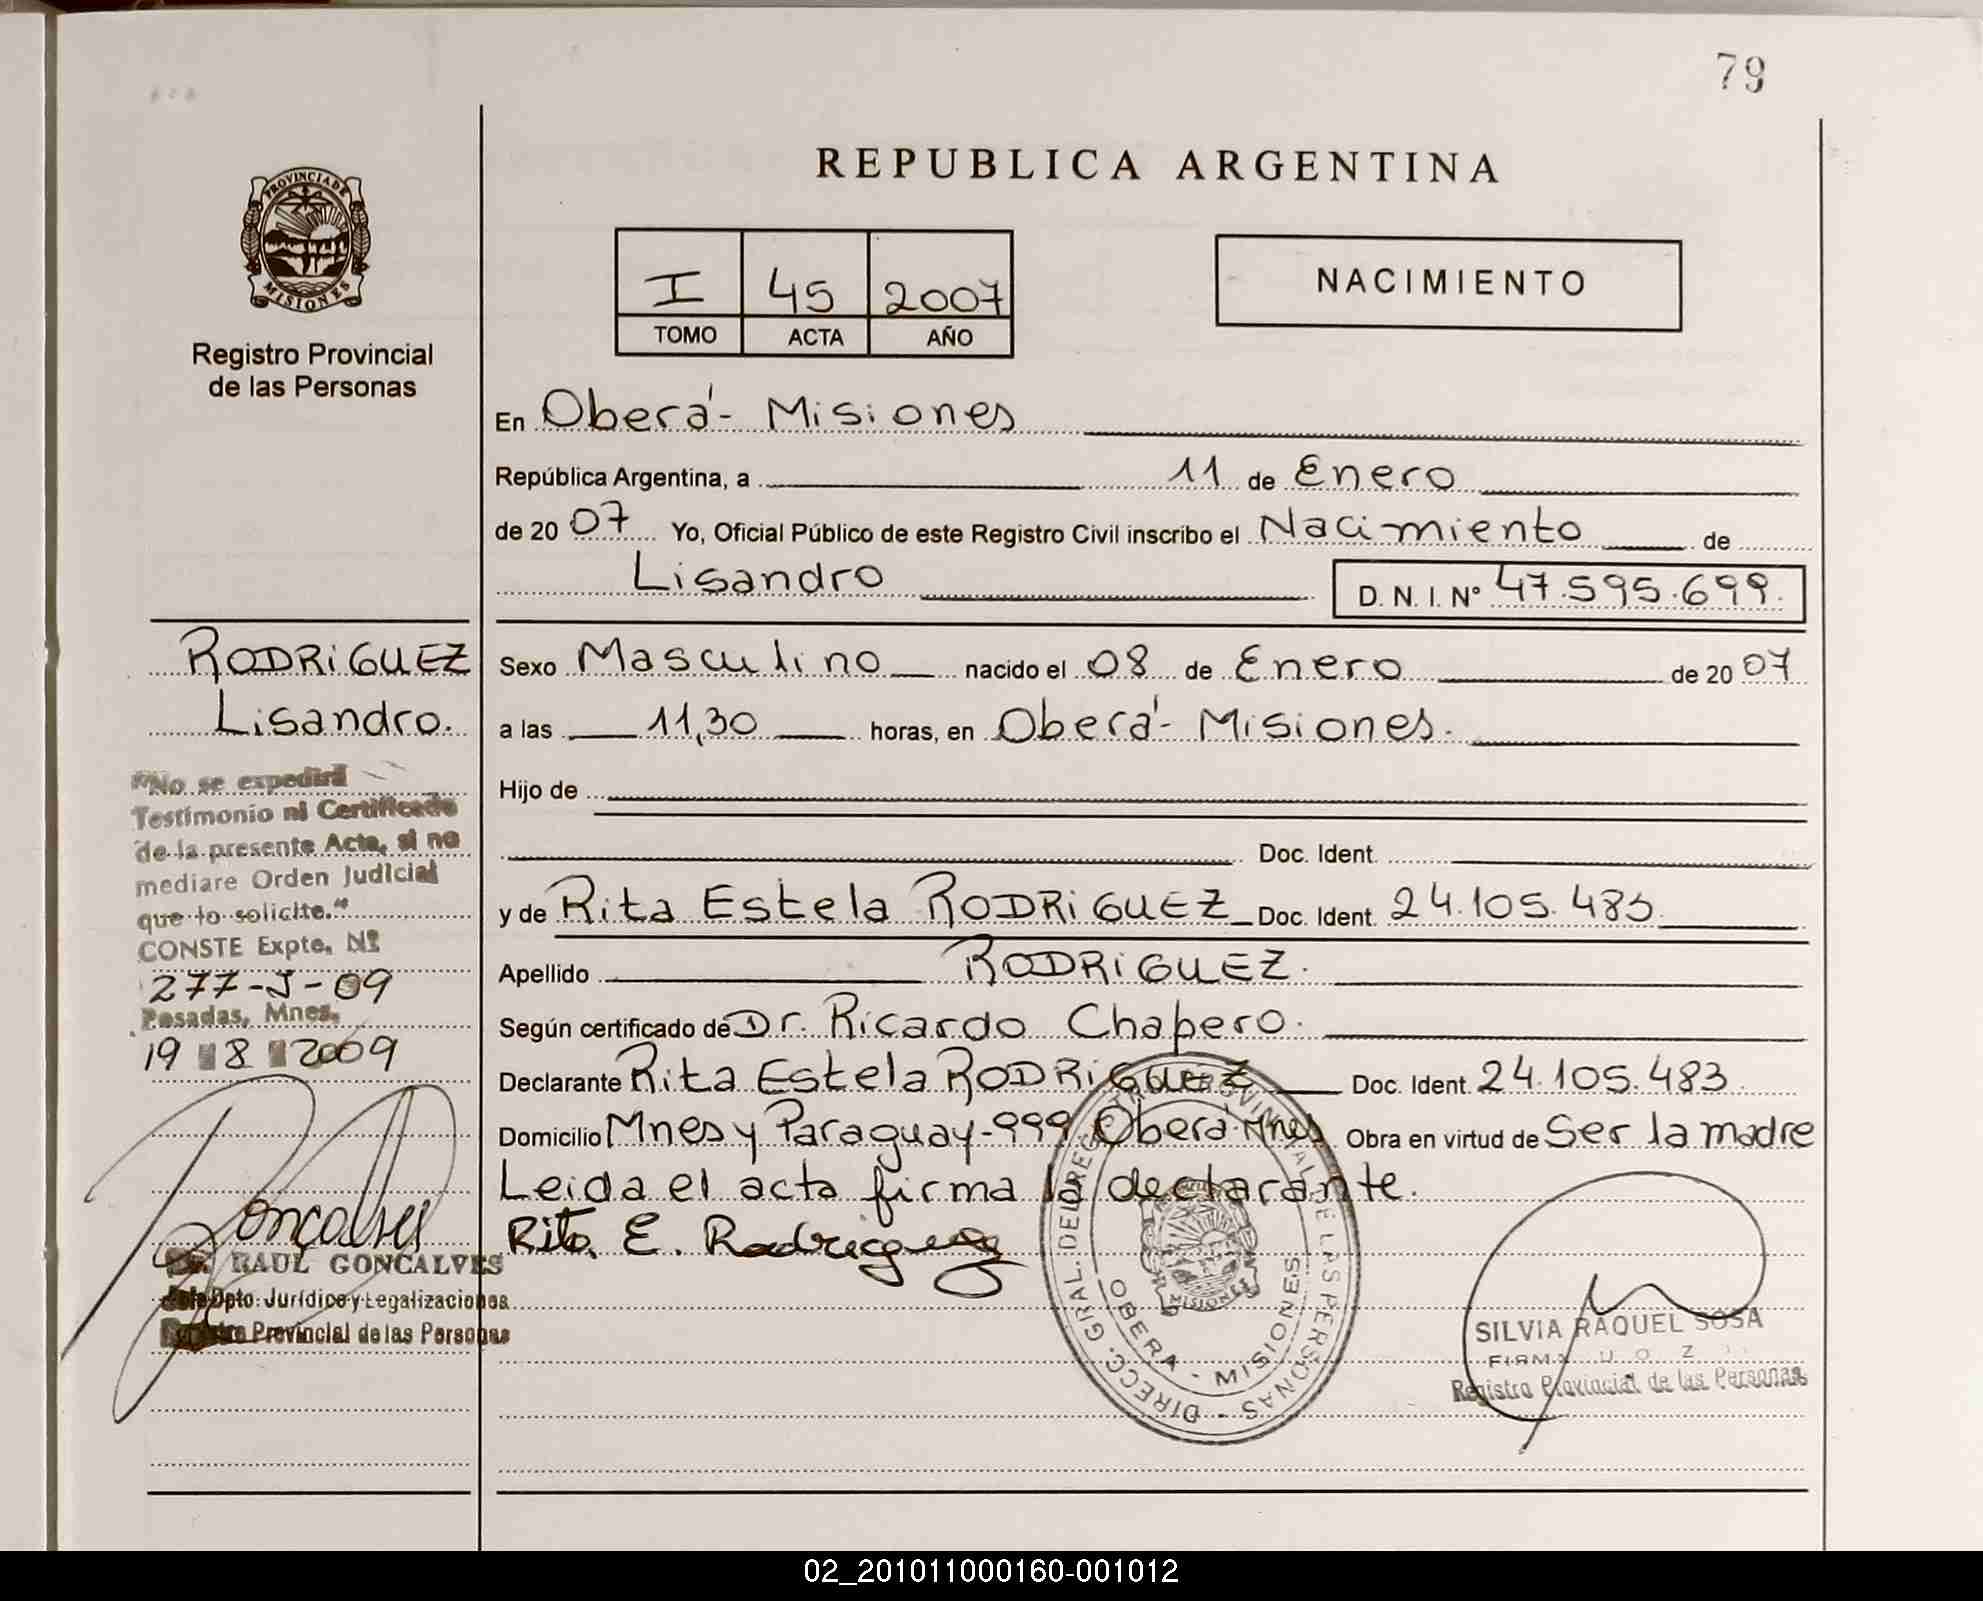 79
REPUBLICA ARGENTINA
PROVINCIA DE
MISIONES
Registro Provincial
de las Personas
I 45 2007
TOMO ACTA AÑO
NACIMIENTO
En Oberá - Misiones
República Argentina, a 11 de Enero
de 20 07 Yo, Oficial Público de este Registro Civil inscribo el Nacimiento de
Lisandro D. N. I. Nº 47.595.699.
Sexo Masculino nacido el 08 de Enero de 20 07
a las 11,30 horas, en Oberá - Misiones.
Hijo de
Doc. Ident.
y de Rita Estela RODRiGUEZ Doc. Ident. 24.105.483
Apellido RODRiGUEZ.
Según certificado de Dr. Ricardo Chapero.
Declarante Rita Estela RODRiGUEZ Doc. Ident. 24.105.483
Domicilio Mnes y Paraguay-999 Oberá-Mnes Obra en virtud de Ser la madre
Leida el acta firma la declarante.
Rita E. Rodriguez
RODRiGUEZ
Lisandro.
"No se expedirá
Testimonio ni Certificado
de la presente Acta, si no
mediare Orden Judicial
que lo solicite."
CONSTE Expte. Nº
277-J-09
Posadas, Mnes.
19 8 2009
Goncalves
RAUL GONCALVES
Jefe Dpto. Jurídico y Legalizaciones
Registro Provincial de las Personas
DIRECC. GRAL. DEL REGISTRO PROVINCIAL DE LAS PERSONAS -
OBERA - MISIONES
MISIONES
SILVIA RAQUEL SOSA
FIRMA
Registro Provincial de las Personas
02_201011000160-001012